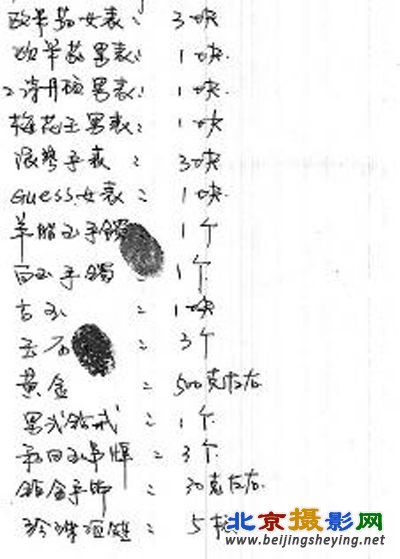 欧米茄女表: 3块
欧米茄男表: 1块
诗丹顿男表: 1块
梅花王男表: 1块
浪琴手表: 3块
Guess女表: 1块
羊脂玉手镯 1个
白玉手镯: 1个
古玉: 1块
玉石: 3个
黄金: 500克左右
男式钻戒: 1个
和田玉吊牌: 3个
铂金手饰: 30克左右
珍珠项链: 5
北京摄影网
www.beijingsheying.net